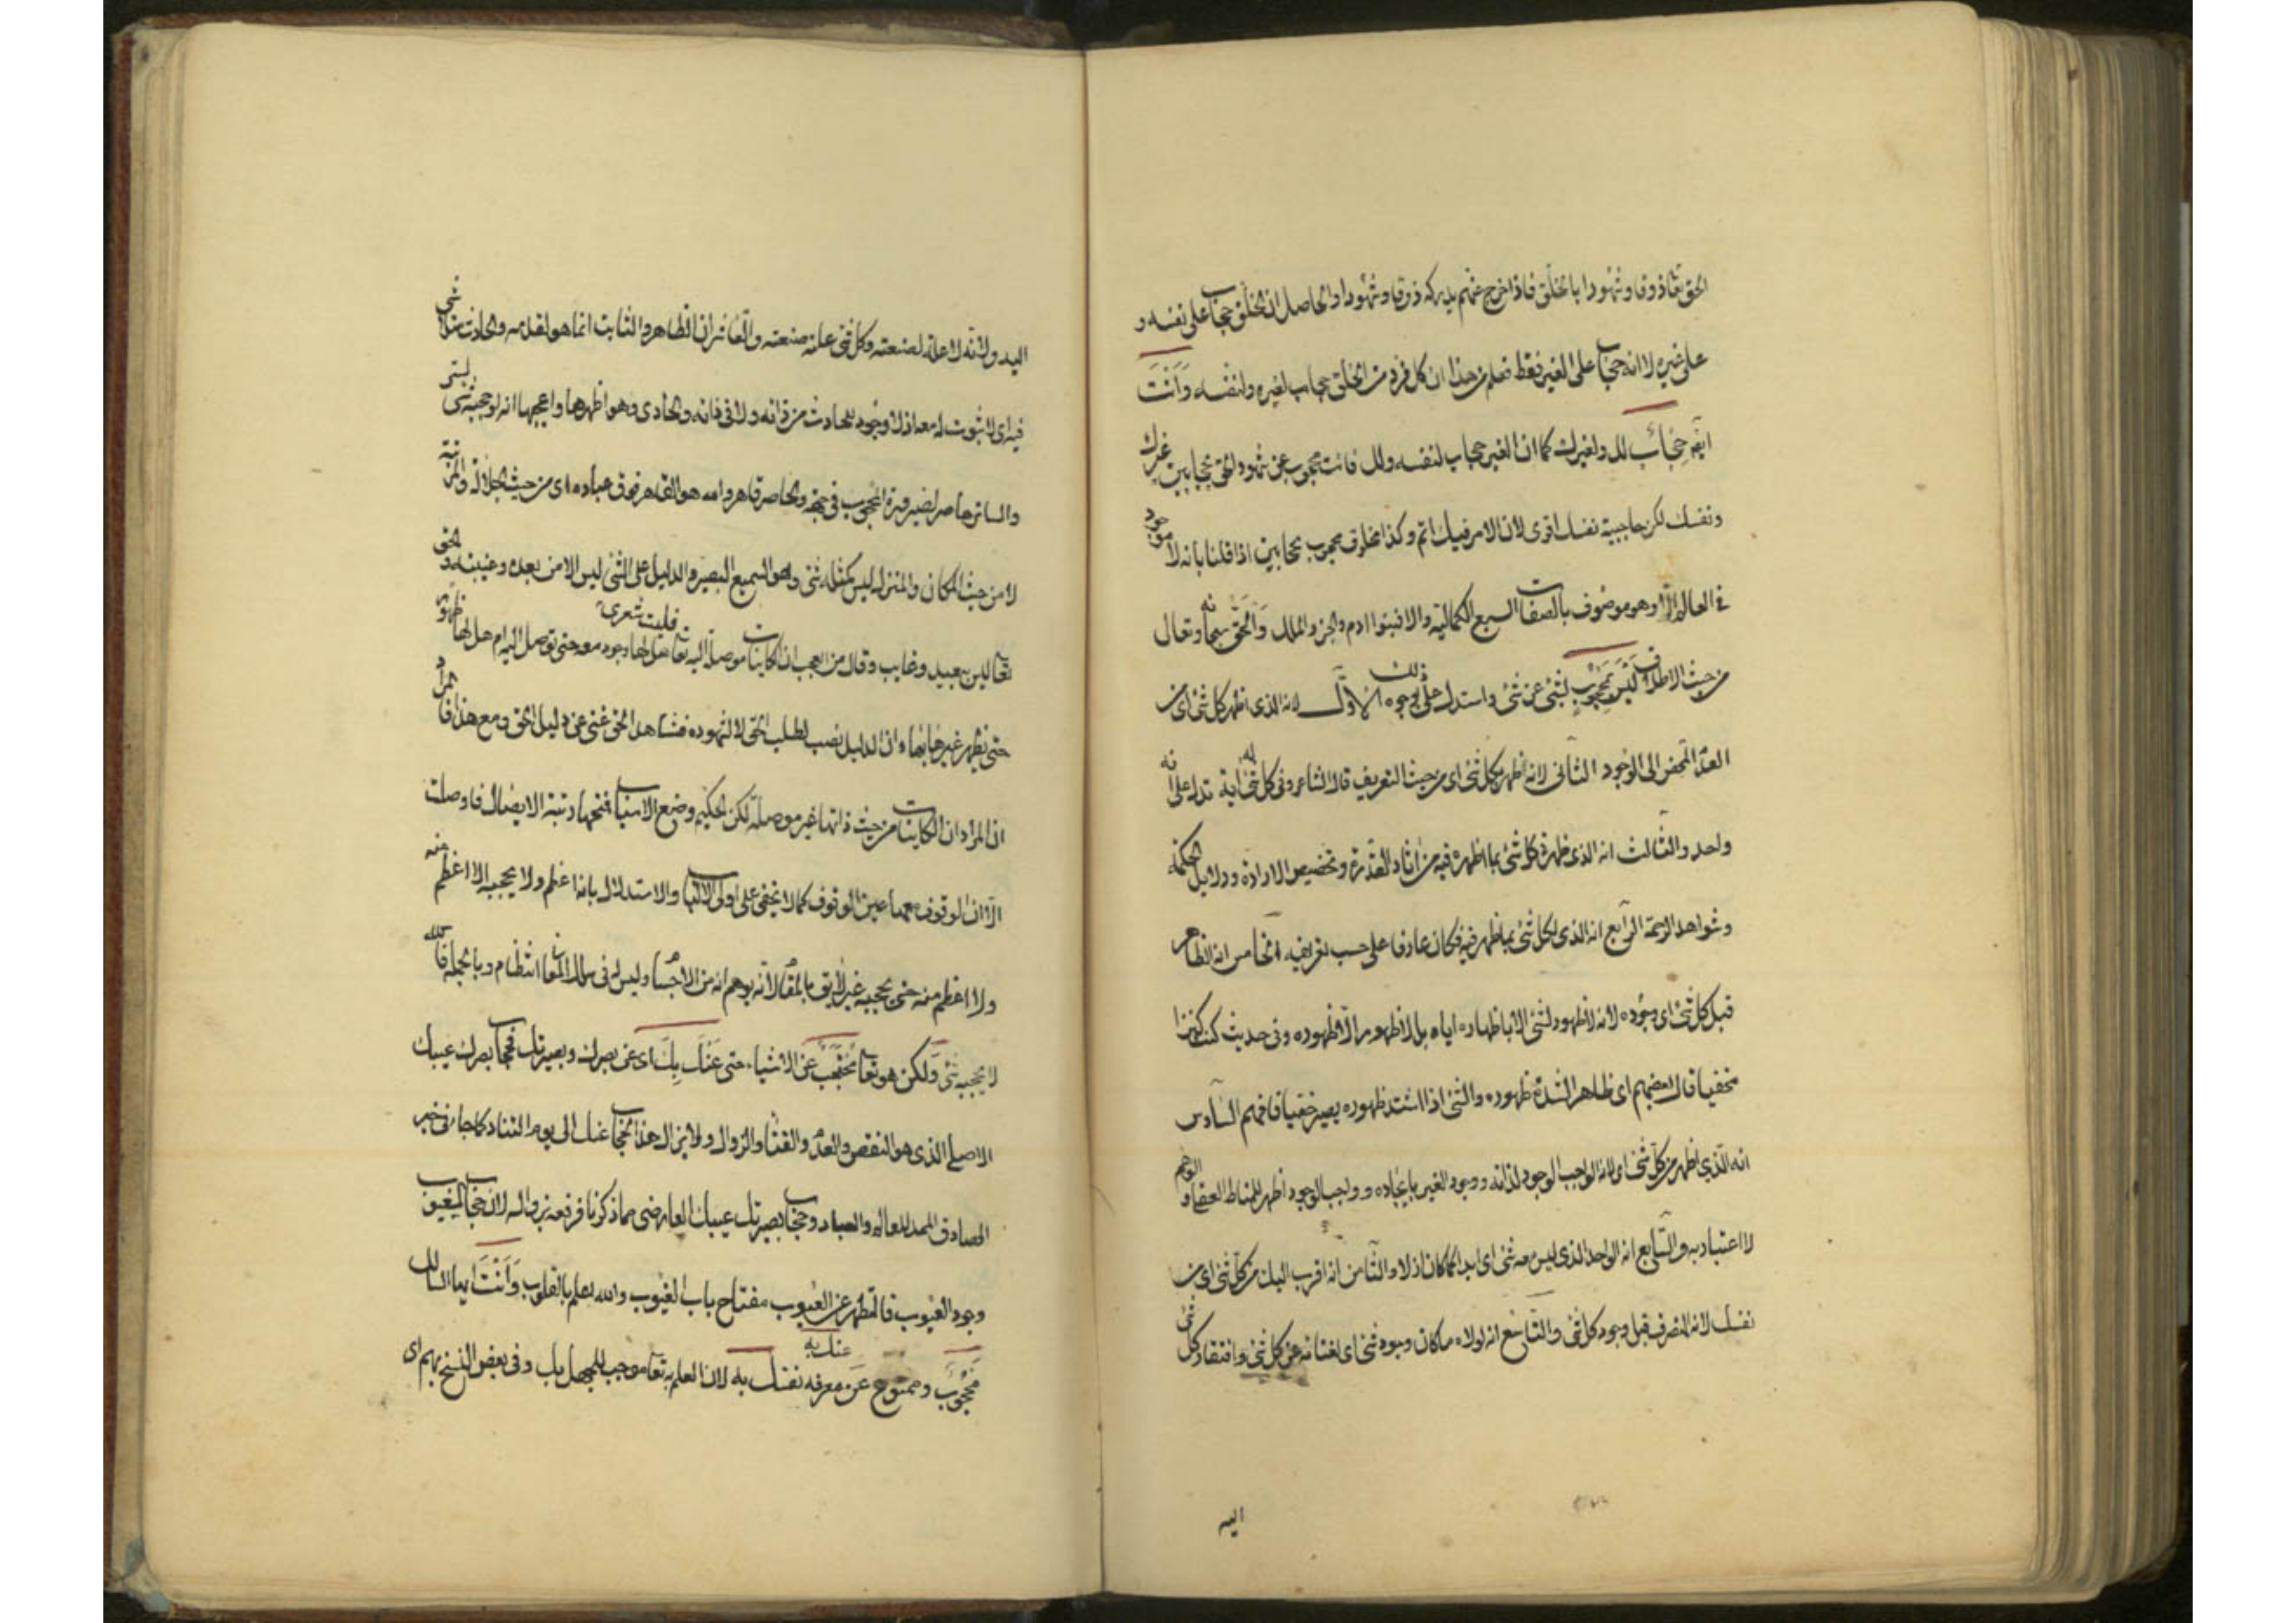 الحق تعا ذوقا وشهودا بالخلق فاذا خرج عنهم يدركه ذوقا وشهودا والحاصل ان الخلق حجاب على نفسه و
على غيره لا انه حجاب على الغير فقط فعلم من هذا ان كل فرد من الخلق حجاب لغيره ولنفسه وَاَنْتَ
ايضا حِجَابٌ لك ولغيرك كما ان الغير حجاب لنفسه ولك فانت محجوب عن شهود الحق بحجابين غيرك
ونفسك لكن حاجبية نفسك اقوى لان الامر فيك اتم وكذا مخلوق محجوب بحجابين اذا قلنا بانه لا موجود
في العالم الا وهو موصوف بالصفات السبع الكمالية والا فبنوا ادم والجن والملك وَالْحَقُّ سبحانه وتعالى
من حيث الاطلاق لَيْسَ بِمَحْجُوبٍ لشئ عن شئ واستدل على ذلك بوجوه الاول لانه الذى اظهر كل شئ اى من
العدم المحض الى الوجود الثانى لانه ظهر بكل شئ اى من حيث التعريف قال الشاعر وفى كل شئ له اية تدل على انه
واحد والثالث انه الذى ظهر فى كل شئ بما اظهره فيه من اثار القدرة وتخصيص الارادة ودلايل الحكمة
وشواهد الرحمة الرابع انه الذى لكل شئ بما ظهر فيه فكان عارفا على حسب تعرفه الخامس انه الظاهر
قبل كل شئ اى وجوده لانه لا ظهور لشئ الا باظهاره اياه بل لا ظهور الا ظهوره وفى حديث كنت كنزا
مخفيا قال بعضهم اى ظاهر الشدة ظهوره والشئ اذا اشتد ظهوره يصير خفيا فافهم السادس
انه الذى اظهر من كل شئ اى لانه الواجب الوجود لذاته ووجود الغير بايجاده وواجب الوجود اظهر للمناط العقل و الوهم
لا اعتبار به والسابع انه الواحد الذى ليس معه شئ اى ابدا كما كان ازلا والثامن انه اقرب اليك من كل شئ اى من
نفسك لانه المتصرف قبل وجود كل شئ والتاسع انه لولاه ما كان وجود شئ اى لغنائه عن كل شئ وافتقار كل شئ
اليه
اليه ولانه لا علة لصنعته وكل شئ علته صنعته والعاشر ان الظاهر والثابت انما هو لقدمه والحادث شئ
فيه اى لا ثبوت له معه اذ لا وجود للحادث من ذاته ولا فى ذاته والحادى وهو اظهرها واعجبها انه لو حجبه شئ لستره
والساتر حاصر لصيرورة المحجوب فى جهة والحاصر قاهر والله هو القاهر فوق عباده اى من حيث الجلالة والمرتبة
لا من حيث المكان والمنزل ليس كمثله شئ وهو السميع البصير والدليل على الشئ ليس الا من بعده وغيبته والحق
تعا ليس ببعيد وغايب وقال من العجب ان الكاينات موصلة اليه تعا فليت شعرى هل لها وجود معه حتى توصل اليه ام هل لها ظهور
حتى يظهر غيرها بها وان الدليل نصب لطلب الحق لا لشهوده فشاهد الحق غنى عن دليل الحق ومع هذا فالمراد
ان المراد ان الكاينات من حيث ذاتها غير موصلة لكن الحكيم وضع الاسباب فتحها رتبة الايصال فاوصلت
الا ان الوقوف معها عين الوقوف كما لا يخفى على اولى الالباب والاستدلال بانه اعظم ولا يحجبه الا اعظم منه
ولا اعظم منه حتى يحجبه غير لايق بالمقام لانه يوهم انه من الاجسام وليس له فى سلك المعانى انتظام وبالجملة فالله
لا يحجبه شئ وَلكن هو تعا مُحْتَجَبٌ عَنِ الاشياء حتى عَنْكَ بِكَ اى عن بصرك وبصيرتك فحجاب بصرك عيبك
الاصلى الذى هو النقص والعدم والفناء والزوال ولا يزال هذا الحجاب عنك الى يوم التناد كما جاء فى خبر
الصادق المحمد للعالم والعباد وحجاب بصيرتك عيبك العارضى مما ذكرنا فرفعه بزواله لان حجاب الغيوب
وجود العيوب فالتطهر عن العيوب مفتاح باب الغيوب والله يعلم بالقلوب وَاَنْتَ ايها السالك
مَحْجُوبٌ وممنوع عَنْ معرفه نفسك عنك به به لان العلم به تعا موجب للجهل بك وفى بعض النسخ بهم اى